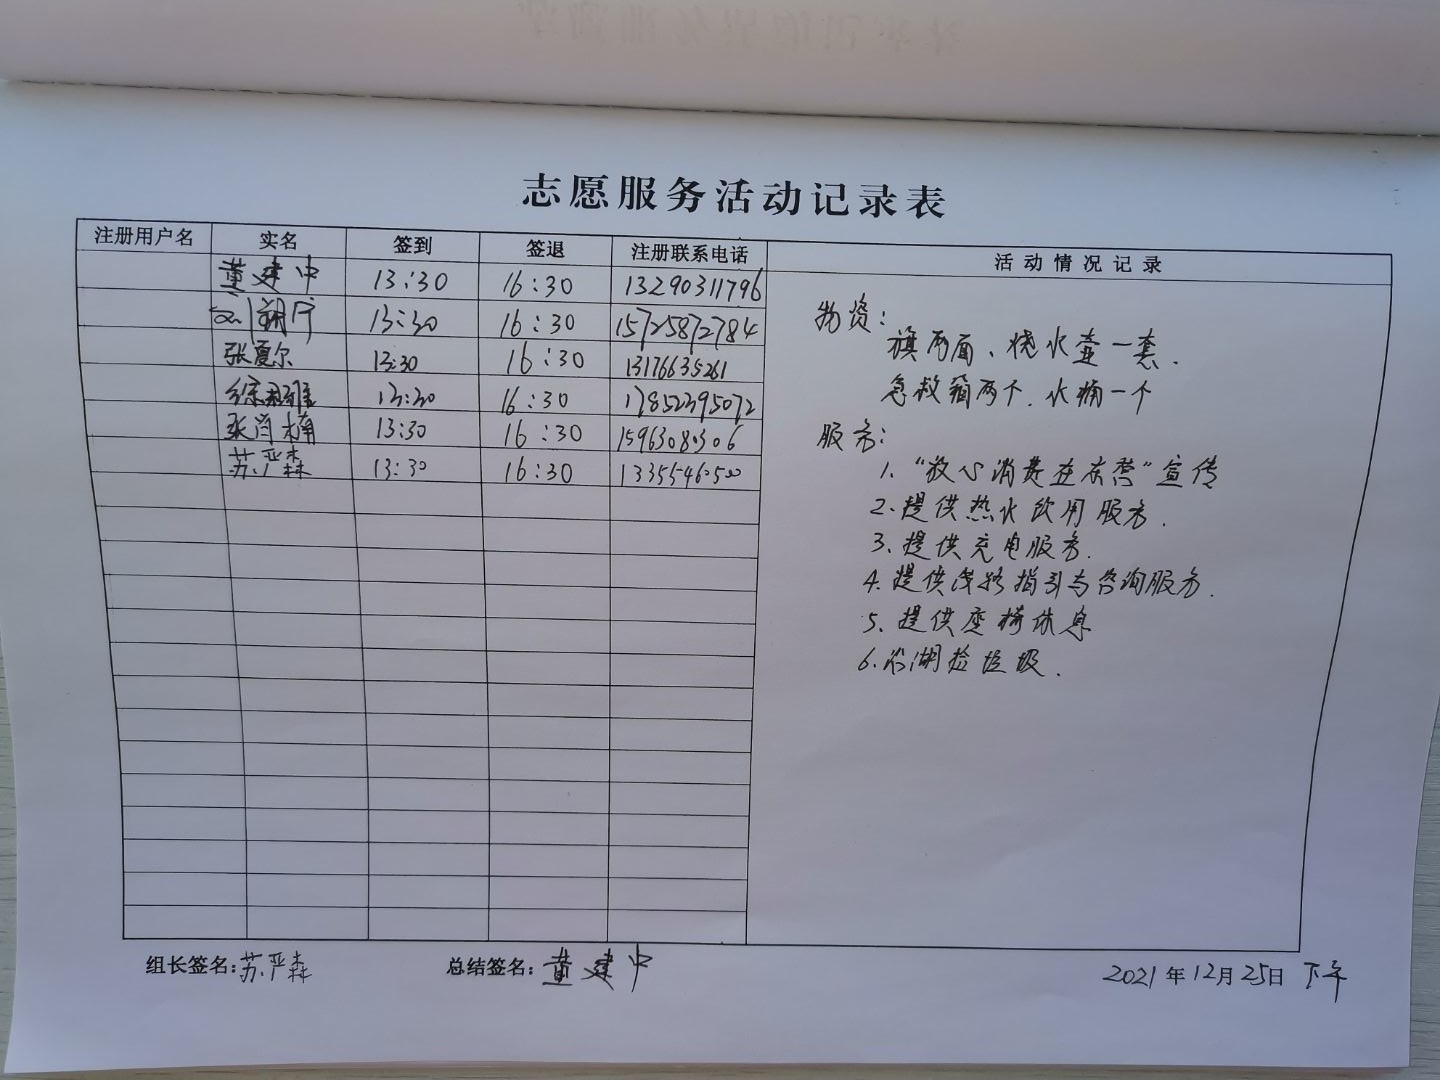 志愿服务活动记录表
注册用户名 实名 签到 签退 注册联系电话 活动情况记录
董建中 13:30 16:30 13290311796
13:30 16:30 15725872784
张夏尔 13:30 16:30 13176635261
徐 13:30 16:30 17852395072
张肖楠 13:30 16:30 15963080306
苏严森 13:30 16:30 13355460500
物资:
旗两面、烧水壶一套.
急救箱两个.水桶一个
服务:
1."放心消费在东营"宣传
2.提供热水饮用服务.
3、提供充电服务.
4.提供线路指引与咨询服务.
5、提供座椅休息
6.沿湖捡垃圾.
组长签名:苏严森 总结签名:董建中 2021年12月25日 下午